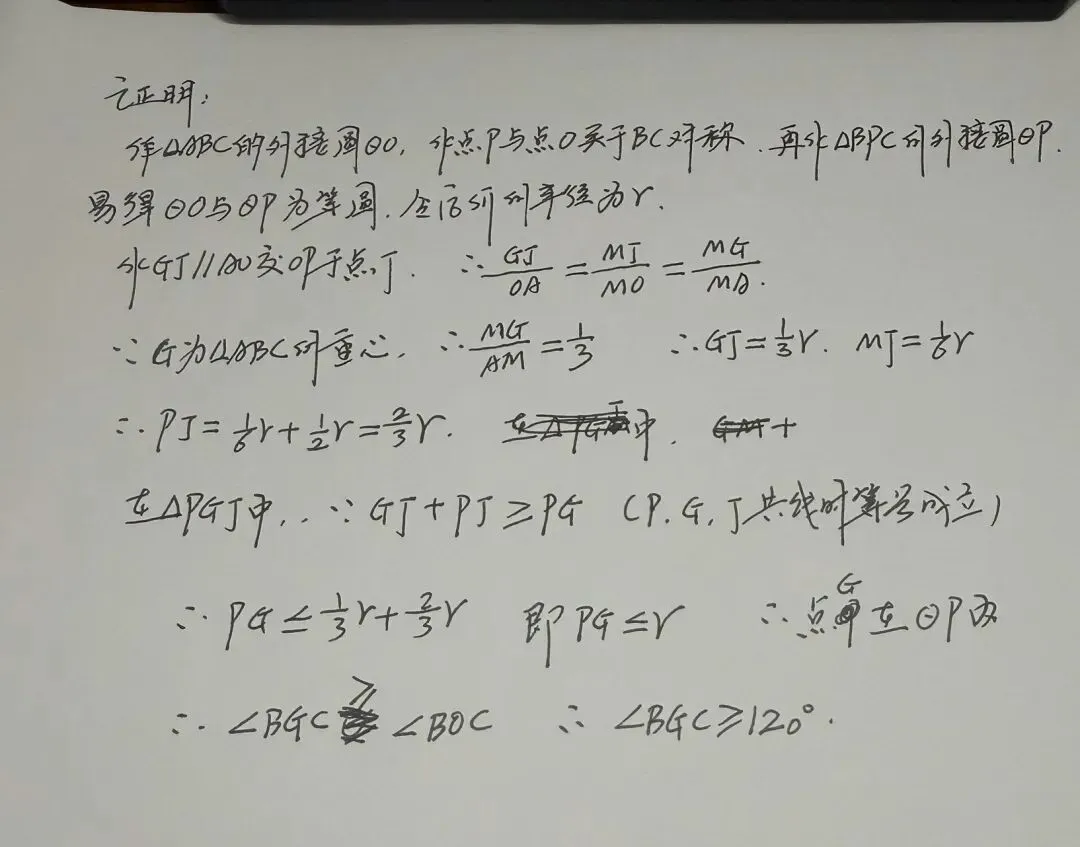 证明:
作△ABC的外接圆⊙O, 作点P与点O关于BC对称. 再作△BPC的外接圆⊙P.
易得⊙O与⊙P为等圆. 令它们的半径为r.
作GJ//AO交OP于点J. ∴ GJ/OA = MJ/MO = MG/MA.
∵ G为△ABC的重心, ∴ MG/AM = 1/3 ∴ GJ = 1/3 r. MJ = 1/6 r
∴ PJ = 1/6 r + 1/2 r = 2/3 r.
在△PGJ中, ∵ GJ + PJ ≥ PG (P. G. J共线时等号成立)
∴ PG ≤ 1/3 r + 2/3 r 即PG ≤ r ∴ 点G在⊙P内
∴ ∠BGC ≥ ∠BOC ∴ ∠BGC ≥ 120°.